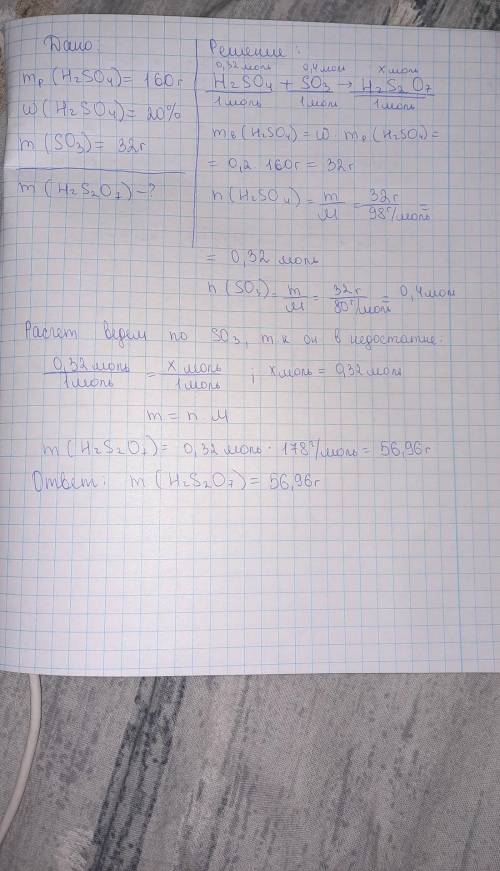 Дано:
mр(H2SO4) = 160г
ω(H2SO4) = 20%
m(SO3) = 32г
m(H2S2O7) - ?
Решение:
0,32 моль 0,4 мол x моль
H2SO4 + SO3 → H2S2O7
1 моль 1 моль 1 моль
mв(H2SO4) = ω · mр(H2SO4) =
= 0,2 · 160г = 32г
n(H2SO4) = m/M = 32г/98г/моль =
= 0,32 моль
n(SO3) = m/M = 32г/80г/моль = 0,4 мол
Расчет ведем по SO3, т.к он в недостатке:
0,32 моль/1 моль = x моль/1 моль ; x моль = 0,32 мол
m = n · M
m(H2S2O7) = 0,32 моль · 178г/моль = 56,96г
Ответ: m(H2S2O7) = 56,96г